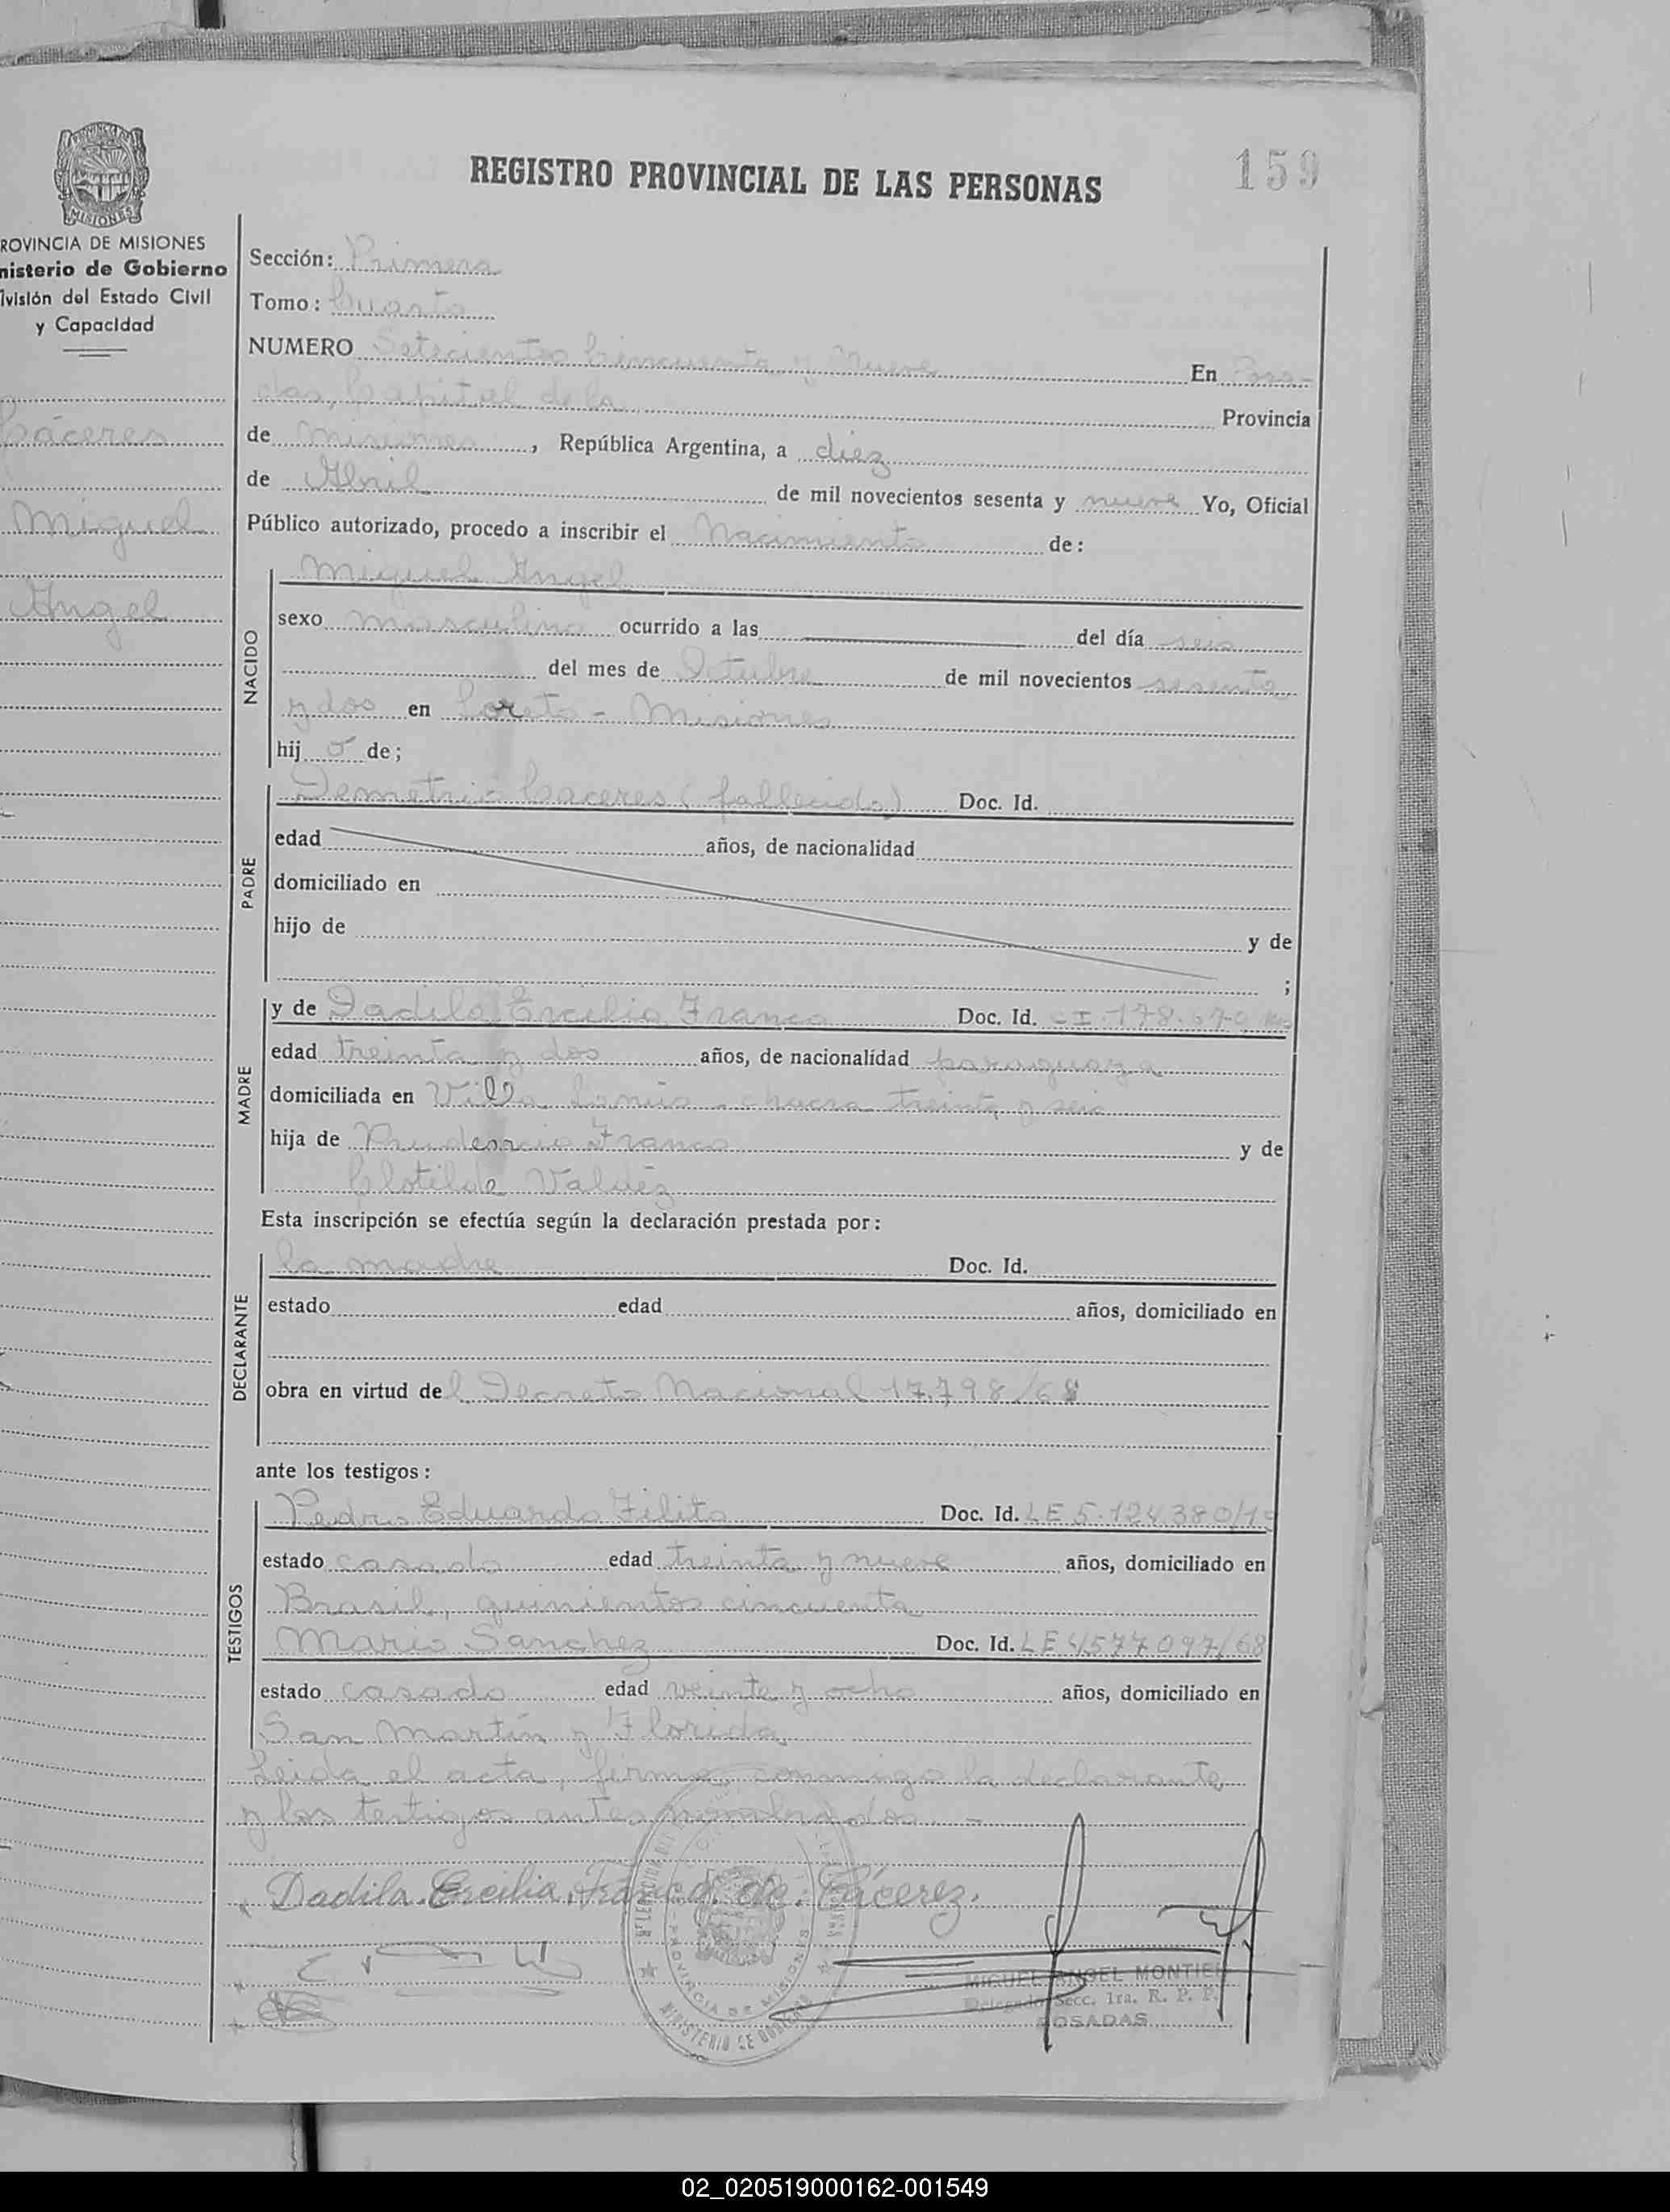 159
REGISTRO PROVINCIAL DE LAS PERSONAS
PROVINCIA DE
MISIONES
ROVINCIA DE MISIONES
nisterio de Gobierno
ivisión del Estado Civil
y Capacidad
Cáceres
Miguel
Angel
Sección: Primera
Tomo: Cuarto
NUMERO Setecientos Cincuenta y Nueve En Posa-
das, Capital de la Provincia
de Misiones, República Argentina, a diez
de Abril de mil novecientos sesenta y nueve Yo, Oficial
Público autorizado, procedo a inscribir el Nacimiento de:
NACIDO
Miguel Angel
sexo masculino ocurrido a las del día seis
del mes de Octubre de mil novecientos sesenta
y dos en Loreto - Misiones
hij o de;
PADRE
Demetrio Caceres (fallecido) Doc. Id.
edad años, de nacionalidad
domiciliado en
hijo de y de
;
MADRE
y de Dadila Ercilia Franco Doc. Id. CI 178.670
edad treinta y dos años, de nacionalidad paraguaya
domiciliada en Villa Lanús - chacra treinta y seis
hija de Prudencio Franco y de
Clotilde Valdéz
Esta inscripción se efectúa según la declaración prestada por:
DECLARANTE
la madre Doc. Id.
estado edad años, domiciliado en
obra en virtud del Decreto Nacional 17.798/68
ante los testigos:
TESTIGOS
Pedro Eduardo Filito Doc. Id. LE 5.124.380/19
estado casado edad treinta y nueve años, domiciliado en
Brasil, quinientos cincuenta
Mario Sanchez Doc. Id. LE 4577097/68
estado casado edad veinte y ocho años, domiciliado en
San Martín y Florida
Leida el acta, firma conmigo la declarante
y los testigos antes nombrados. -
Dadila Ercilia Franco de Cácerez.
PROVINCIA DE MISIONES
MINISTERIO DE GOBIERNO
MIGUEL ANGEL MONTIEL
Delegado Secc. 1ra. R. P. P.
POSADAS
02_020519000162-001549